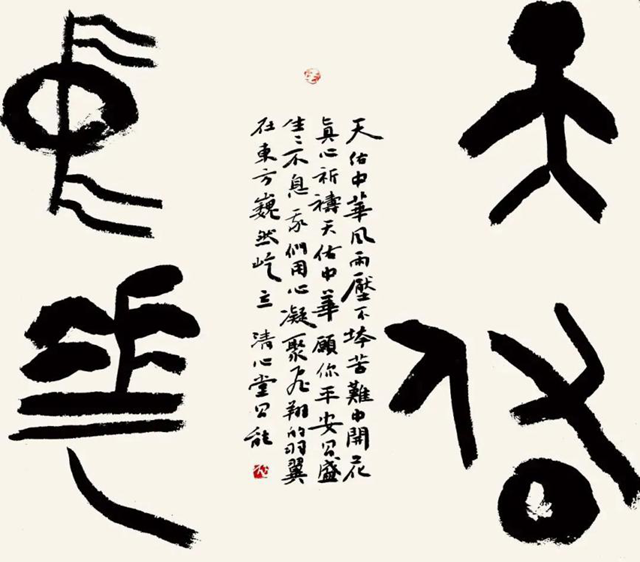 天佑
天佑中華风雨壓不垮苦難中開花
真心祈禱天佑中華願你平安昌盛
生〻不息我們用心凝聚飛翔的羽翼
在東方巍然屹立 清心堂昌能
中華